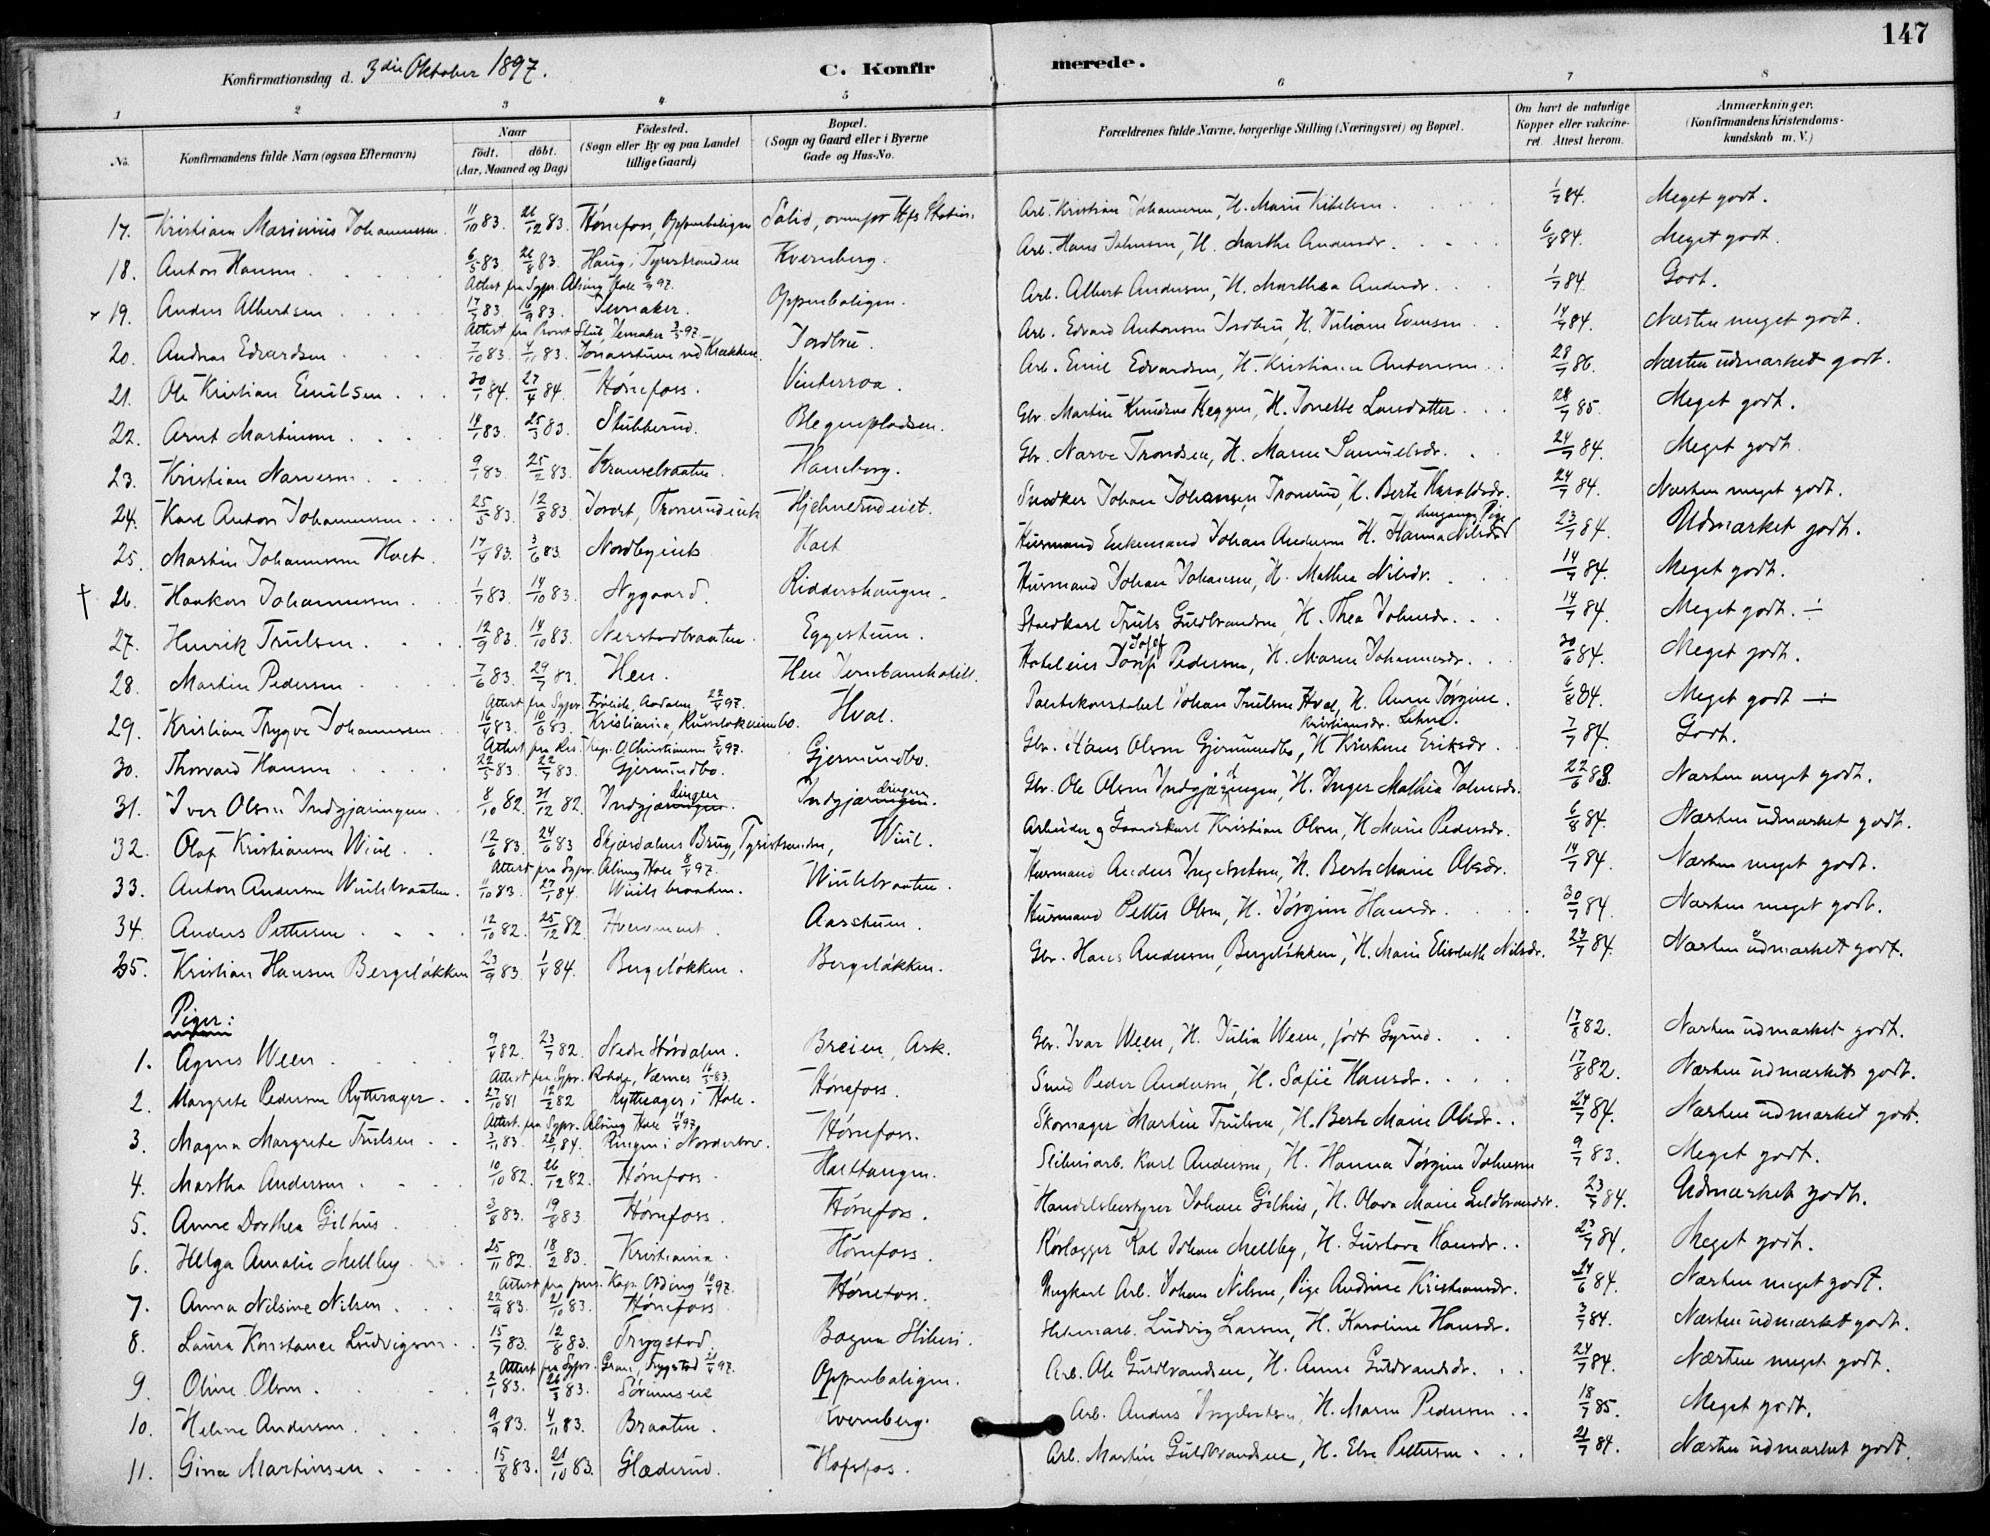 147
Konfirmationsdag d. 3die Oktober 1897. C. Konfirmerede.
1 2 3 4 5 6 7 8
No. Konfirmandens fulde Navn (ogsaa Efternavn) Naar födt. döbt. (Aar, Maaned og Dag) Födested. (Sogn eller By og paa Landet tillige Gaard) Bopæl. (Sogn og Gaard eller i Byerne Gade og Hus-No. Forældrenes fulde Navne, borgerlige Stilling (Næringsvei) og Bopæl. Om havt de naturlige Kopper eller vakcineret. Attest herom. Anmærkninger. (Konfirmandens Kristendomskundskab m. V.)
17. Kristian Marinius Johannessen 11/10 83. 26/12 83. Hönefoss, Oppenbaligen Solid, ovenfor Hfs Station. Arb. Kristian Johannesen, H. Marie Kihelsen. 1/7 84. Meget godt.
18. Anton Hansen 6/5 83. 26/8 83. Haug i Tyristranden Kvernberg. Arb. Hans Johnsen, H. Marthe Andersdr. 6/8 84. Meget godt.
Attest fra Sypr. Alsing Hole 6/9 97.
19. Anders Albertsen 17/7 83. 16/9 83. Jevnaker. Oppenbaligen. Arb. Albert Andersen, H. Marthea Andersdr. 1/7 84. Godt.
Attest fra Provst Jevnaker 3/5 97.
20. Andreas Edvardsen 7/10 83. 4/11 83. Jonasstuen ved Krakken Jordbru. Arb. Edvard Antonsen Jordbru, H. Juliane Evensen 14/7 84. Næsten meget godt.
21. Ole Kristian Emilsen 30/1 84. 27/4 84. Hönefoss. Vinterroa. Arb. Emil Edvardsen, H. Kristiane Antonsen 28/7 86. Næsten udmærket godt.
22. Arnt Martinsen 14/1 83. 25/3 83. Stubberud. Blegepladsen. Gbr. Martin Knudsen Heggen, H. Jonette Larsdatter 28/7 85. Meget godt.
23. Kristian Narvesen 9/1 83. 25/2 83. Kranselraaten. Hansborg. Gbr. Narve Trondsen, H. Maren Samuelsdr. 24/7 84. Meget godt.
24. Karl Anton Johannessen 25/5 83. 12/8 83. Jordet, Tronrudeiet Hjelmerudeiet. Snedker Johan Johansen, Tronrud, H. Berte Haraldsdr. 24/7 84. Næsten meget godt.
25. Martin Johannessen Hoet 17/4 83. 3/6 83. Nordbyeiet Hoet Husmand Enkemand Johan Andersen H. Hanna Nilsdr Pige 23/7 84. Udmærket godt.
† 26. Haakon Johannessen 1/7 83. 14/10 83. Nygaard. Riddershaugen. Husmand Johan Johansen, H. Mathea Nilsdr. 14/7 84. Meget godt.
27. Henrik Trulsen 12/9 83. 14/10 83. Nerstadbraaten. Eggestuen. Staldkarl Truls Guldbrandsen, H. Thea Johnsdr. 14/7 84. Meget godt. ÷
28. Martin Pedersen 7/6 83. 29/7 83. Hen. Hen Jernbanehotell. Hoteleier Josef Pedersen, H. Maren Johannesdr. 30/6 84. Meget godt.
Attest fra Sypr. Aadalen, 22/4 97.
29. Kristian Trygve Johannessen 16/4 83. 10/6 83. Kristiania, Hval. Politikonstabel Johan Trulsen Hval, H. Anne Jörgine Kristiansdr. Lehne. 6/8 84. Meget godt ÷
Attest fra Res. Kap. O. Christiansen 5/4 97.
30. Thorvald Hansen 22/5 83. 22/7 83. Gjermundbo. Gjermundbo. Gbr. Hans Olsen Gjermundbo, H. Kristine Eriksdr. 7/7 84. Godt.
31. Iver Olsen Indgjæringen 8/10 82. 31/12 82. Indgjæringen dingen. Indgjæringen dingen. Gbr. Ole Olsen Indgjæringen, H. Inger Mathia Johnsdr. 22/6 83. Næsten meget godt.
32. Olaf Kristiansen Wiul 12/6 83. 24/6 83 Skjærdalens Brug, Tyristranden, Wiul. Arbeider og Gaardskarl Kristian Olsen, H. Marie Pedersdr. 6/8 84. Næsten udmærket godt.
Attest fra Sypr. Alsing Hole 8/4 97.
33. Anton Andersen Wiulsbraaten. 11/10 83. 27/1 84. Wiulsbraaten. Wiulsbraaten. Husmand Anders Ingebretsen, H. Berte Marie Olsdr. 14/7 84. Næsten meget godt.
34. Anders Pettersen 12/10 82. 25/12 82. Hveremoet. Aasstuen. Husmand Petter Olsen, H. Jörgine Hansdr. 30/7 84. Næsten meget godt.
35. Kristian Hansen Bergelökken 23/9 83. 1/4 84. Bergelökken. Bergelökken. Gbr. Hans Andersen, Bergelökken, H. Marie Elisabeth Nilsdr. 23/7 84. Næsten udmærket godt.
Piger:
1. Agnes Ween 9/4 82. 23/7 82. Nedre Stördalen. Breien, Ask. Gbr. Ivar Ween, H. Julia Ween, född Gyrud. 17/8 82. Næsten udmærket godt.
Attest fra Sypr. Rohde, Værnes 16/5 83.
2. Margrete Pedersen Rytterager. 27/10 81 12/2 82 Rytterager i Hole. Hönefoss. Smed Peder Andersen, H. Sofie Hansdr. 17/8 82. Næsten udmærket godt.
Attest. fra Sypr. Alsing Hole 14/4 97.
3. Magna Margrete Trulsen 3/11 83. 26/1 84. Ringen i Norderhov. Hönefoss. Skomager Martin Trulsen, H. Berte Marie Olsdr. 24/7 84. Næsten udmærket godt.
4. Martha Andersen 10/10 82. 26/12 82. Hönefoss. Haltangen. Sliberiarb. Karl Andersen, H. Hanna Jörgine Johnsen 9/7 83. Meget godt.
5. Anne Dorthea Gilhus 3/8 83. 19/8 83. Hönefoss. Hönefoss. Handelsbestyrer Johan Gilhus, H. Olava Marie Guldbrandsdr. 23/7 84. Udmærket godt.
6. Helga Amalie Mellby 25/11 82. 18/2 83. Kristiania. Hönefoss. Rörlægger Karl Johan Mellby, H. Gustava Hansdr. 23/7 84. Meget godt.
Attest fra pers. Kap. 10/4 97.
7. Anna Nilsine Nilsen 22/9 83. 21/10 83. Hönefoss Hönefoss. Arb. Johan Nilsen, Pige Andrine Kristiansdr. 24/6 84. Næsten meget godt.
8. Laura Konstance Ludvigsen 15/7 83. 12/8 83. Trygstad. Bægna Sliberi. Sliberiarb. Ludvig Larsen, H. Karoline Hansdr. 3/7 84. Næsten udmærket godt.
Attest fra Sypr. Gran, Trygstad 21/4 97.
9. Oline Olsen 2/1 83. 26/3 83. Oppenbaligen. Arb. Ole Guldbrandsen, H. Anne Guldbrandsdr. 24/7 84. Næsten meget godt.
10. Helene Andersen 9/9 83. 4/11 83. Braaten. Kvernberg. Arb. Anders Ingebretsen, H. Maren Pedersen 18/7 85. Meget godt.
11. Gina Martinsen 15/8 83. 21/10 83. Glæderud. Hofsfos. Arb. Martin Guldbrandsen, H. Else Pettersen 21/7 84. Næsten udmærket godt.